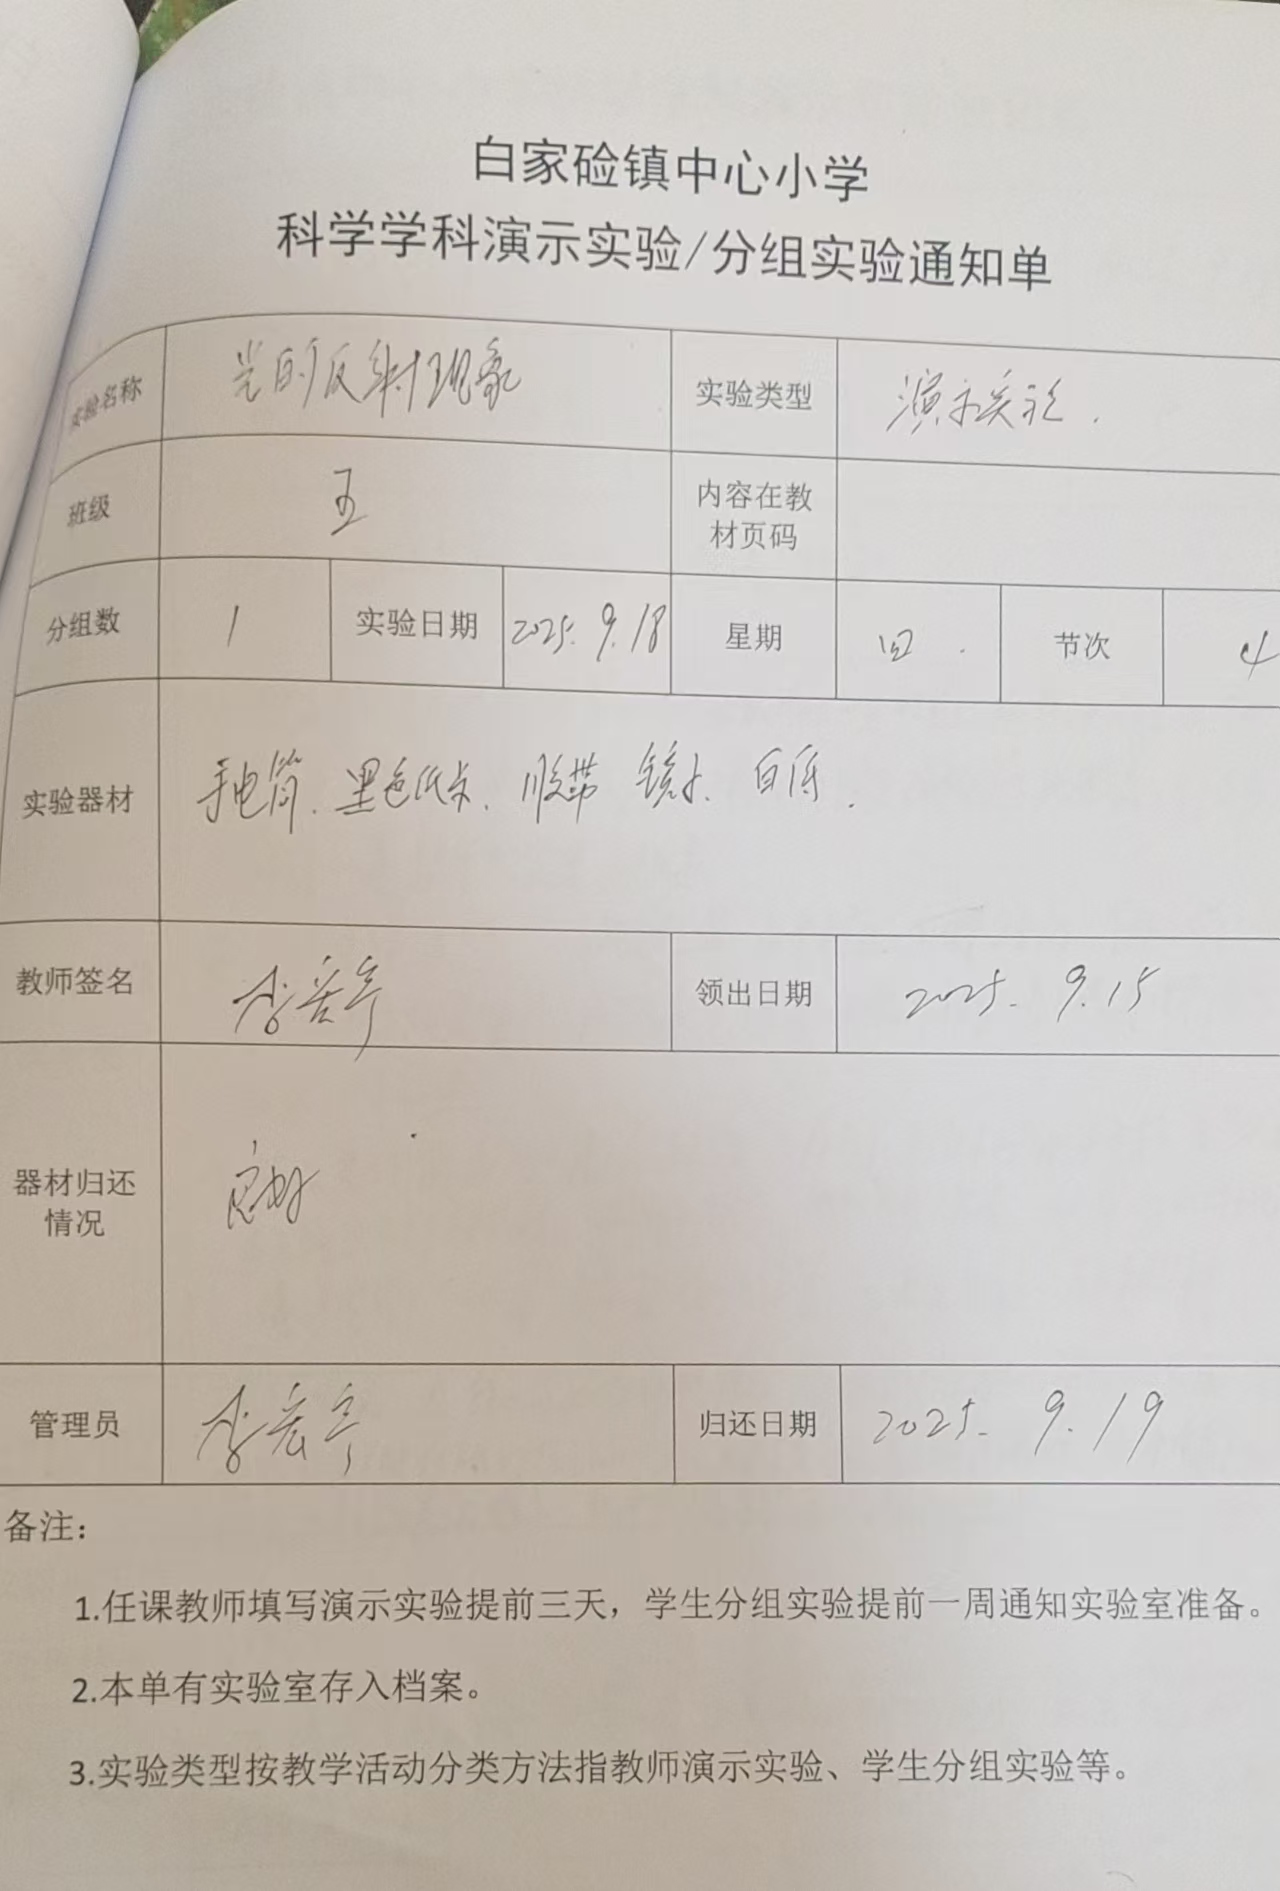 白家硷镇中心小学
科学学科演示实验/分组实验通知单
实验名称 光的反射现象 实验类型 演示实验.
班级 五 内容在教材页码
分组数 1 实验日期 2025.9.18 星期 四 节次 4
实验器材 手电筒、黑色纸卡、胶带 镜子、白纸.
教师签名 李宏亭 领出日期 2025.9.15
器材归还情况 良好
管理员 李宏亭 归还日期 2025.9.19
备注:
1.任课教师填写演示实验提前三天，学生分组实验提前一周通知实验室准备。
2.本单有实验室存入档案。
3.实验类型按教学活动分类方法指教师演示实验、学生分组实验等。